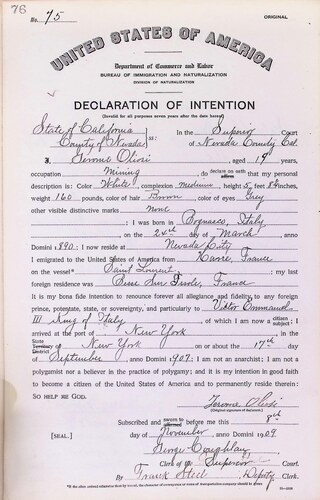 76
No. 75
ORIGINAL
UNITED STATES OF AMERICA
Department of Commerce and Labor
BUREAU OF IMMIGRATION AND NATURALIZATION
DIVISION OF NATURALIZATION
DECLARATION OF INTENTION
(Invalid for all purposes seven years after the date hereof)
State of California
County of Nevada ss:
In the Superior Court
of Nevada County Cal.
I, Jerome Oliosi, aged 19 years,
occupation Mining, do declare on oath that my personal
description is: Color White, complexion medium, height 5 feet inches,
weight 160 pounds, color of hair Brown, color of eyes Grey
other visible distinctive marks None
I was born in Italy
on the 24th day of March, anno
Domini 1890; I now reside at Nevada City
I emigrated to the United States of America from Havre, France
on the vessel Saint Lorent; my last
foreign residence was France
It is my bona fide intention to renounce forever all allegiance and fidelity to any foreign
prince, potentate, state, or sovereignty, and particularly to Viktor Emmanuel
III King of Italy, of which I am now a subject; I
arrived at the port of New York, in the
State Territory District of New York on or about the 17th day
of September, anno Domini 1907; I am not an anarchist; I am not a
polygamist nor a believer in the practice of polygamy; and it is my intention in good faith
to become a citizen of the United States of America and to permanently reside therein:
SO HELP ME GOD.
Jerome Oliosi
(Original signature of declarant.)
Subscribed and sworn to before me this 8th
[SEAL.] day of November, anno Domini 1909
George Coughlan
Clerk of the Superior Court.
By Frank Steel, Deputy Clerk.